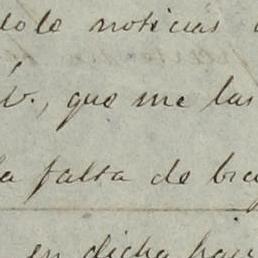 dolo noticias
V., que me las
la falta de
en dicha